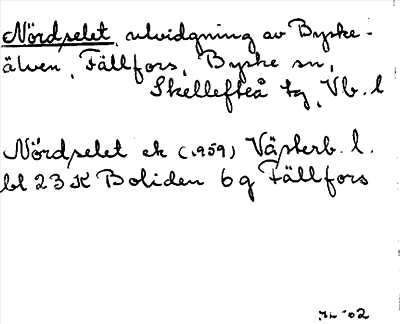 Nördselet, utvidgning av Byske-
älven, Fällfors, Byske sn,
Skellefteå tg, Vb. l
Nördselet ek (1959) Västerb. l.
bl 23 K Boliden 6 g Fällfors